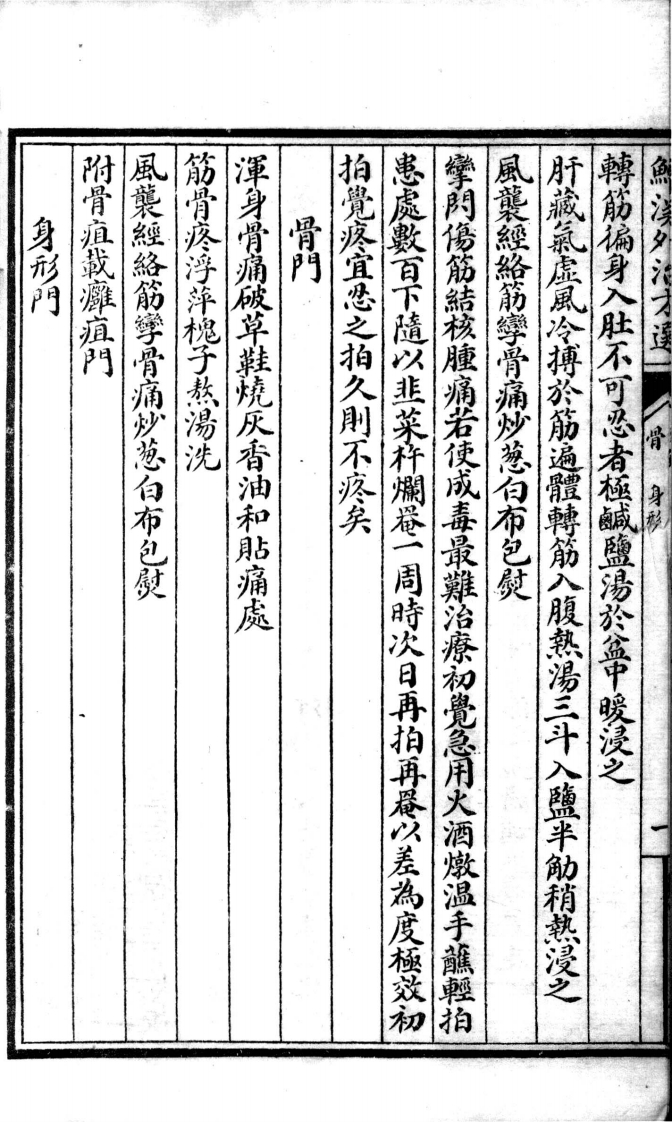 外治
骨　身形
一
轉筋徧身入肚不可忍者極鹹鹽湯於盆中暖浸之
肝藏氣虛風冷搏於筋遍體轉筋入腹熱湯三斗入鹽半觔稍熱浸之
風襲經絡筋攣骨痛炒葱白布包熨
攣閃傷筋結核腫痛若使成毒最難治療初覺急用火酒燉温手蘸輕拍
患處數百下隨以韭菜杵爛罨一周時次日再拍再罨以差為度極效初
拍覺疼宜忍之拍久則不疼矣
骨門
渾身骨痛破草鞋燒灰香油和貼痛處
筋骨疼浮萍槐子熬湯洗
風襲經絡筋攣骨痛炒葱白布包熨
附骨疽載癰疽門
身形門